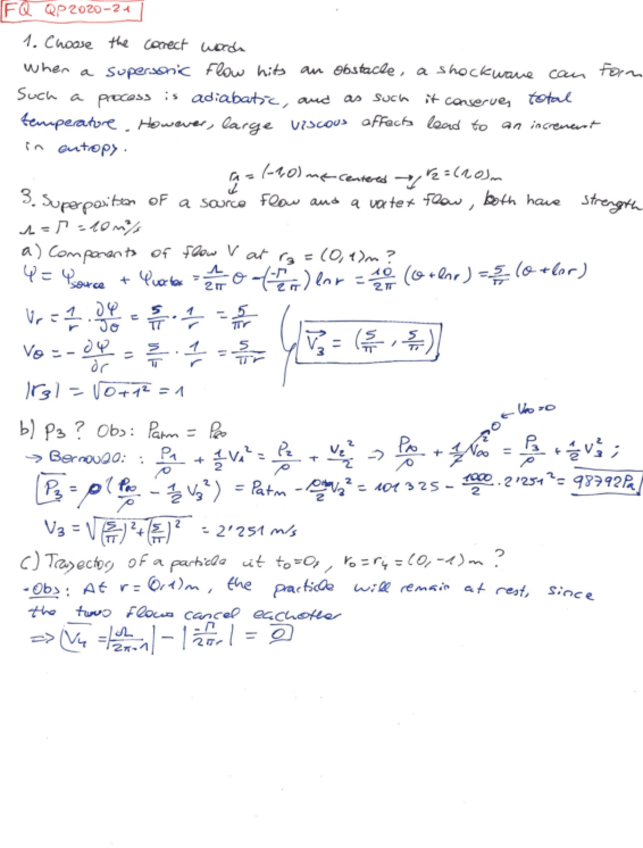 FQ QP2020-21
1. Choose the correct words
When a supersonic flow hits an obstacle, a shockwave can form
Such a process is adiabatic, and as such it conserves total
temperature. However, large viscous effects lead to an increment
in entropy.
r₁ = (-1,0) m ← centered → r₂ = (1,0) m
3. Superposition of a source flow and a vortex flow, both have strength
Λ = Γ = 10 m²/s
a) Components of flow V at r₃ = (0,1)m ?
Ψ = Ψsource + Ψvortex = Λ/2π θ - (-Γ/2π) ln r = 10/2π (θ + ln r) = 5/π (θ + ln r)
Vr = 1/r · ∂Ψ/∂θ = 5/π · 1/r = 5/πr
Vθ = - ∂Ψ/∂r = 5/π · 1/r = 5/πr
V₃ = (5/π, 5/π)
|r₃| = √0+1² = 1
b) p₃ ? Obs: Patm = P∞
0 ← V∞=0
→ Bernoulli: P₁/ρ + 1/2 V₁² = P₂/ρ + V₂²/2 → P∞/ρ + 1/2 V∞² = P₃/ρ + 1/2 V₃² ;
P₃ = ρ(P∞/ρ - 1/2 V₃²) = Patm - ρ/2 V₃² = 101325 - 1000/2 · 2'251² = 98792Pa
V₃ = √(5/π)² + (5/π)² = 2'251 m/s
c) Trajectory of a particle at t₀=0, r₀=r₄=(0,-1)m ?
-Obs: At r = (0,1)m, the particle will remain at rest, since
the two flows cancel eachother
⇒ V₄ = |Λ/2π·1| - |-Γ/2πr| = 0